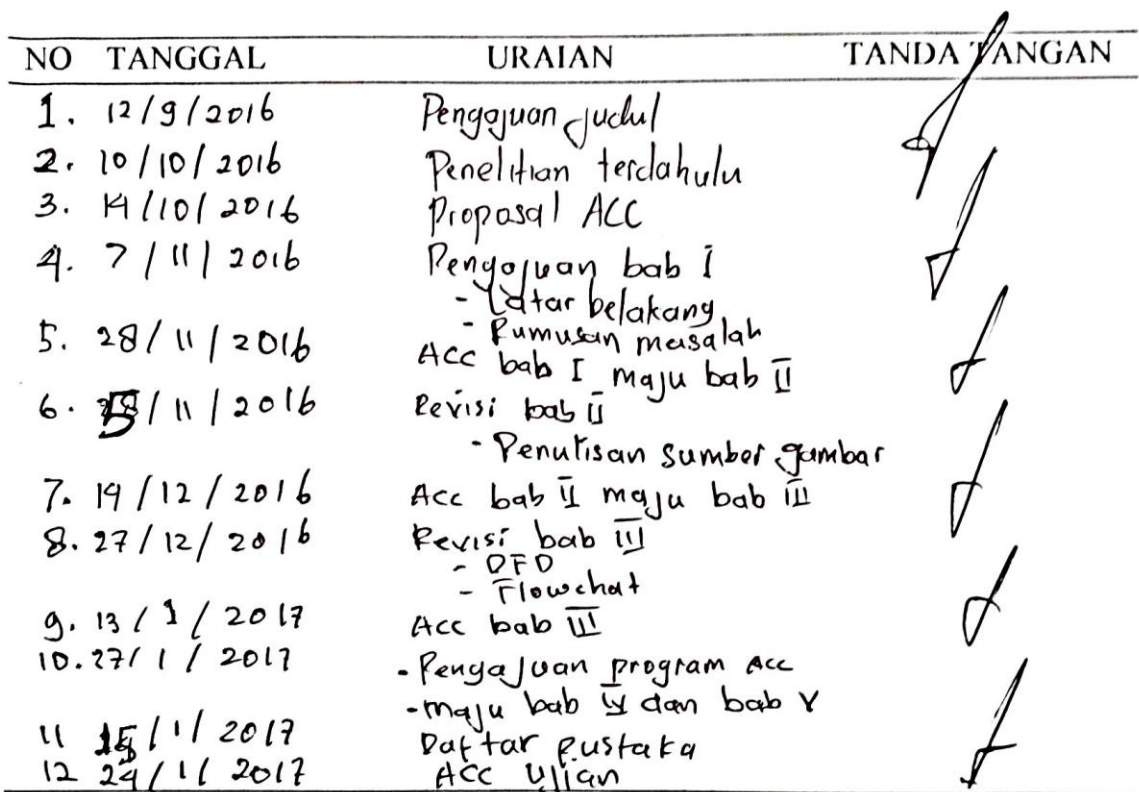 NO TANGGAL URAIAN TANDA TANGAN
1. 12/9/2016 Pengajuan judul
2. 10/10/2016 Penelitian terdahulu
3. 14/10/2016 Proposal ACC
4. 7/11/2016 Pengajuan bab I
- Latar belakang
- Rumusan masalah
5. 28/11/2016 ACC bab I maju bab II
6. /11/2016 Revisi bab II
- Penulisan sumber gambar
7. 19/12/2016 Acc bab II maju bab III
8. 27/12/2016 Revisi bab III
- DFD
- Flowchat
9. 13/1/2017 Acc bab III
10. 27/1/2017 - Pengajuan program Acc
- maju bab IV dan bab V
11 /1/2017 Daftar Pustaka
12 24/1/2017 ACC Ujian